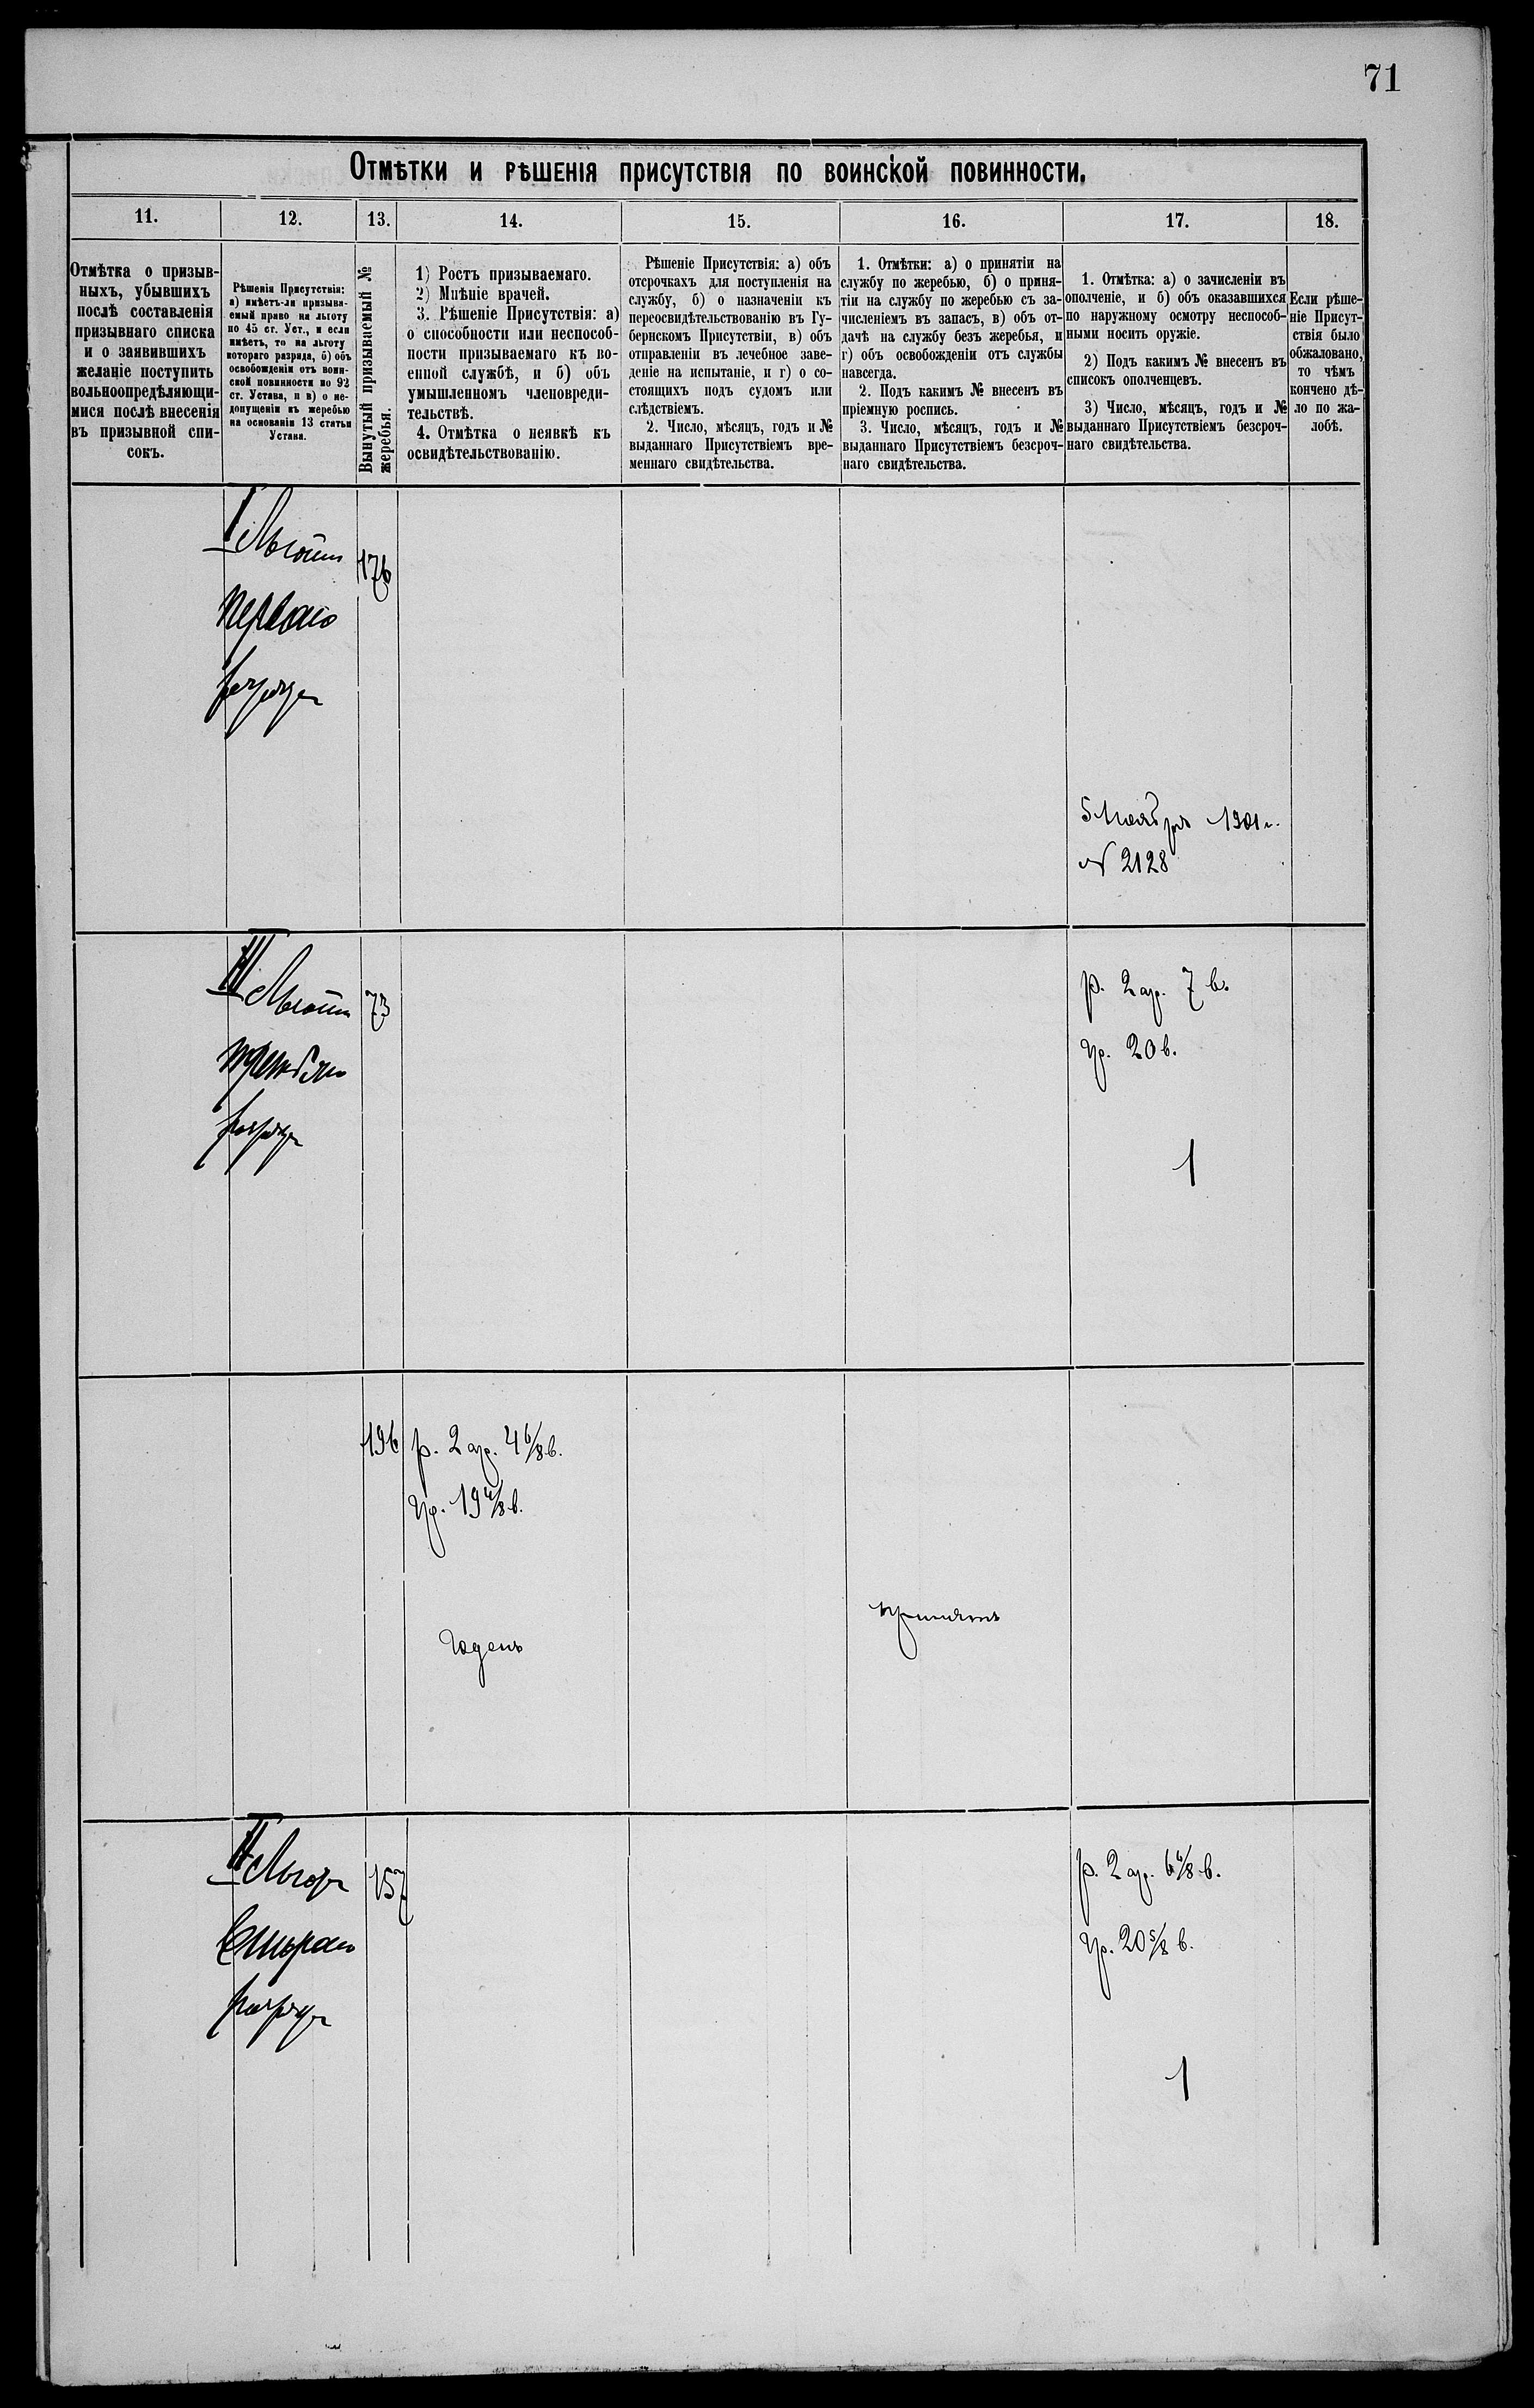 71
Отмѣтки и рѣшенія присутствія по воинской повинности.
11.
12.
13.
14.
15.
16.
17.
18.
Отмѣтка о призыв-
ныхъ, убывшихъ
послѣ составленія
призывнаго списка
и о заявившихъ
желаніе поступить
вольноопредѣляющи-
мися послѣ внесенія
въ призывной спи-
сокъ.
Рѣшенія Присутствія:
а) имѣетъ-ли призыва-
емый право на льготу
по 45 ст. Уст., и если
имѣетъ, то на льготу
котораго разряда, б) объ
освобожденіи отъ воин-
ской повинности по 92
ст. Устава, и в) о не-
допущеніи къ жеребью
на основаніи 13 статьи
Устава.
Вынутый призываемый №
жеребья.
1) Ростъ призываемаго.
2) Мнѣніе врачей.
3. Рѣшеніе Присутствія: а)
о способности или неспособ-
ности призываемаго къ во-
енной службѣ, и б) объ
умышленномъ членовреди-
тельствѣ.
4. Отмѣтка о неявкѣ къ
освидѣтельствованію.
Рѣшеніе Присутствія: а) объ
отсрочкахъ для поступленія на
службу, б) о назначеніи къ
переосвидѣтельствованію въ Гу-
бернскомъ Присутствіи, в) объ
отправленіи въ лечебное заве-
деніе на испытаніе, и г) о со-
стоящихъ подъ судомъ или
слѣдствіемъ.
2. Число, мѣсяцъ, годъ и №
выданнаго Присутствіемъ вре-
меннаго свидѣтельства.
1. Отмѣтки: а) о принятіи на
службу по жеребью, б) о приня-
тіи на службу по жеребью съ за-
численіемъ въ запасъ, в) объ от-
дачѣ на службу безъ жеребья, и
г) объ освобожденіи отъ службы
навсегда.
2. Подъ какимъ № внесенъ въ
пріемную роспись.
3. Число, мѣсяцъ, годъ и №
выданнаго Присутствіемъ безсроч-
наго свидѣтельства.
1. Отмѣтка: а) о зачисленіи въ
ополченіе, и б) объ оказавшихся
по наружному осмотру неспособ-
ными носить оружіе.
2) Подъ какимъ № внесенъ въ
списокъ ополченцевъ.
3) Число, мѣсяцъ, годъ и №
выданнаго Присутствіемъ безсроч-
наго свидѣтельства.
Если рѣше-
ніе Присут-
ствія было
обжаловано,
то чѣмъ
кончено дѣ-
ло по жа-
лобѣ.
I Льготы
перваго
разряда
176
5 Ноября 1901 г.
№ 2128
III Льготы
третьяго
разряда
73
р. 2 ар. 7 в.
гр. 20 в.
1
196
р. 2 ар. 4 6/8 в.
гр. 19 4/8 в.
Годенъ
принятъ
II Льгота
Второго
разряда
157
р. 2 ар. 6 6/8 в.
гр. 20 5/8 в.
1